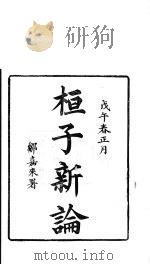 研狗
戊午春正月
桓子新論
鄒嘉來署
mtoou.info